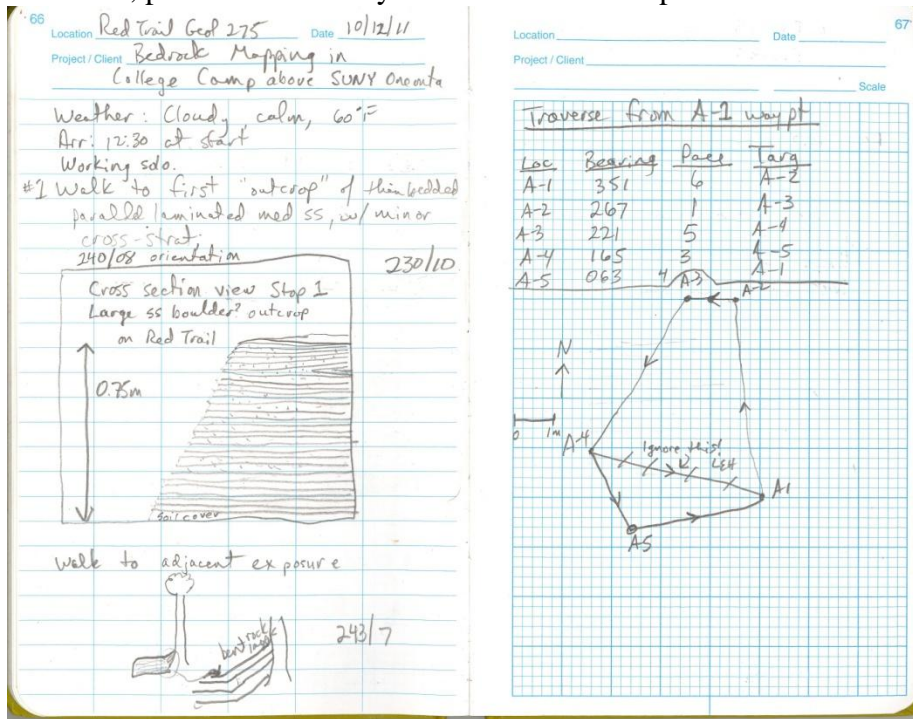 66
Location Red Trail Geol 275 Date 10/12/11
Project / Client Bedrock Mapping in
College Camp above SUNY Oneonta
Weather: Cloudy, calm, 60°F
Arr: 12:30 at start
Working solo.
#1 Walk to first "outcrop" of thin bedded
parallel laminated med ss, w/ minor
cross-strat.
240/08 orientation
230/10
Cross section view Stop 1
Large ss boulder? outcrop
on Red Trail
0.75m
soil cover
Walk to adjacent exposure
243/7
bent rock
67
Location Date
Project / Client
Scale
Traverse from A-1 waypt
Loc Bearing Pace Targ
A-1 351 6 A-2
A-2 267 1 A-3
A-3 221 5 A-4
A-4 165 3 A-5
A-5 063 4 A-1
A-3 A-2
N
0 1m
A-4
Ignore this!
LEH
A1
A5